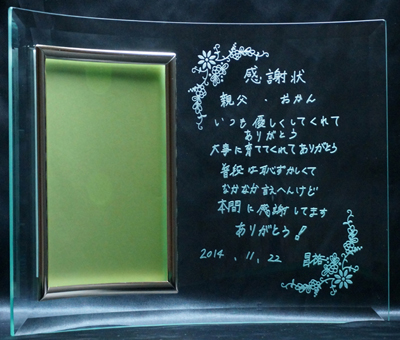 感謝状
親父・おかん
いつも優しくしてくれて
ありがとう
大事に育ててくれてありがとう
普段は恥ずかしくて
なかなか言えへんけど
本間に感謝してます
ありがとう!
2014.11.22